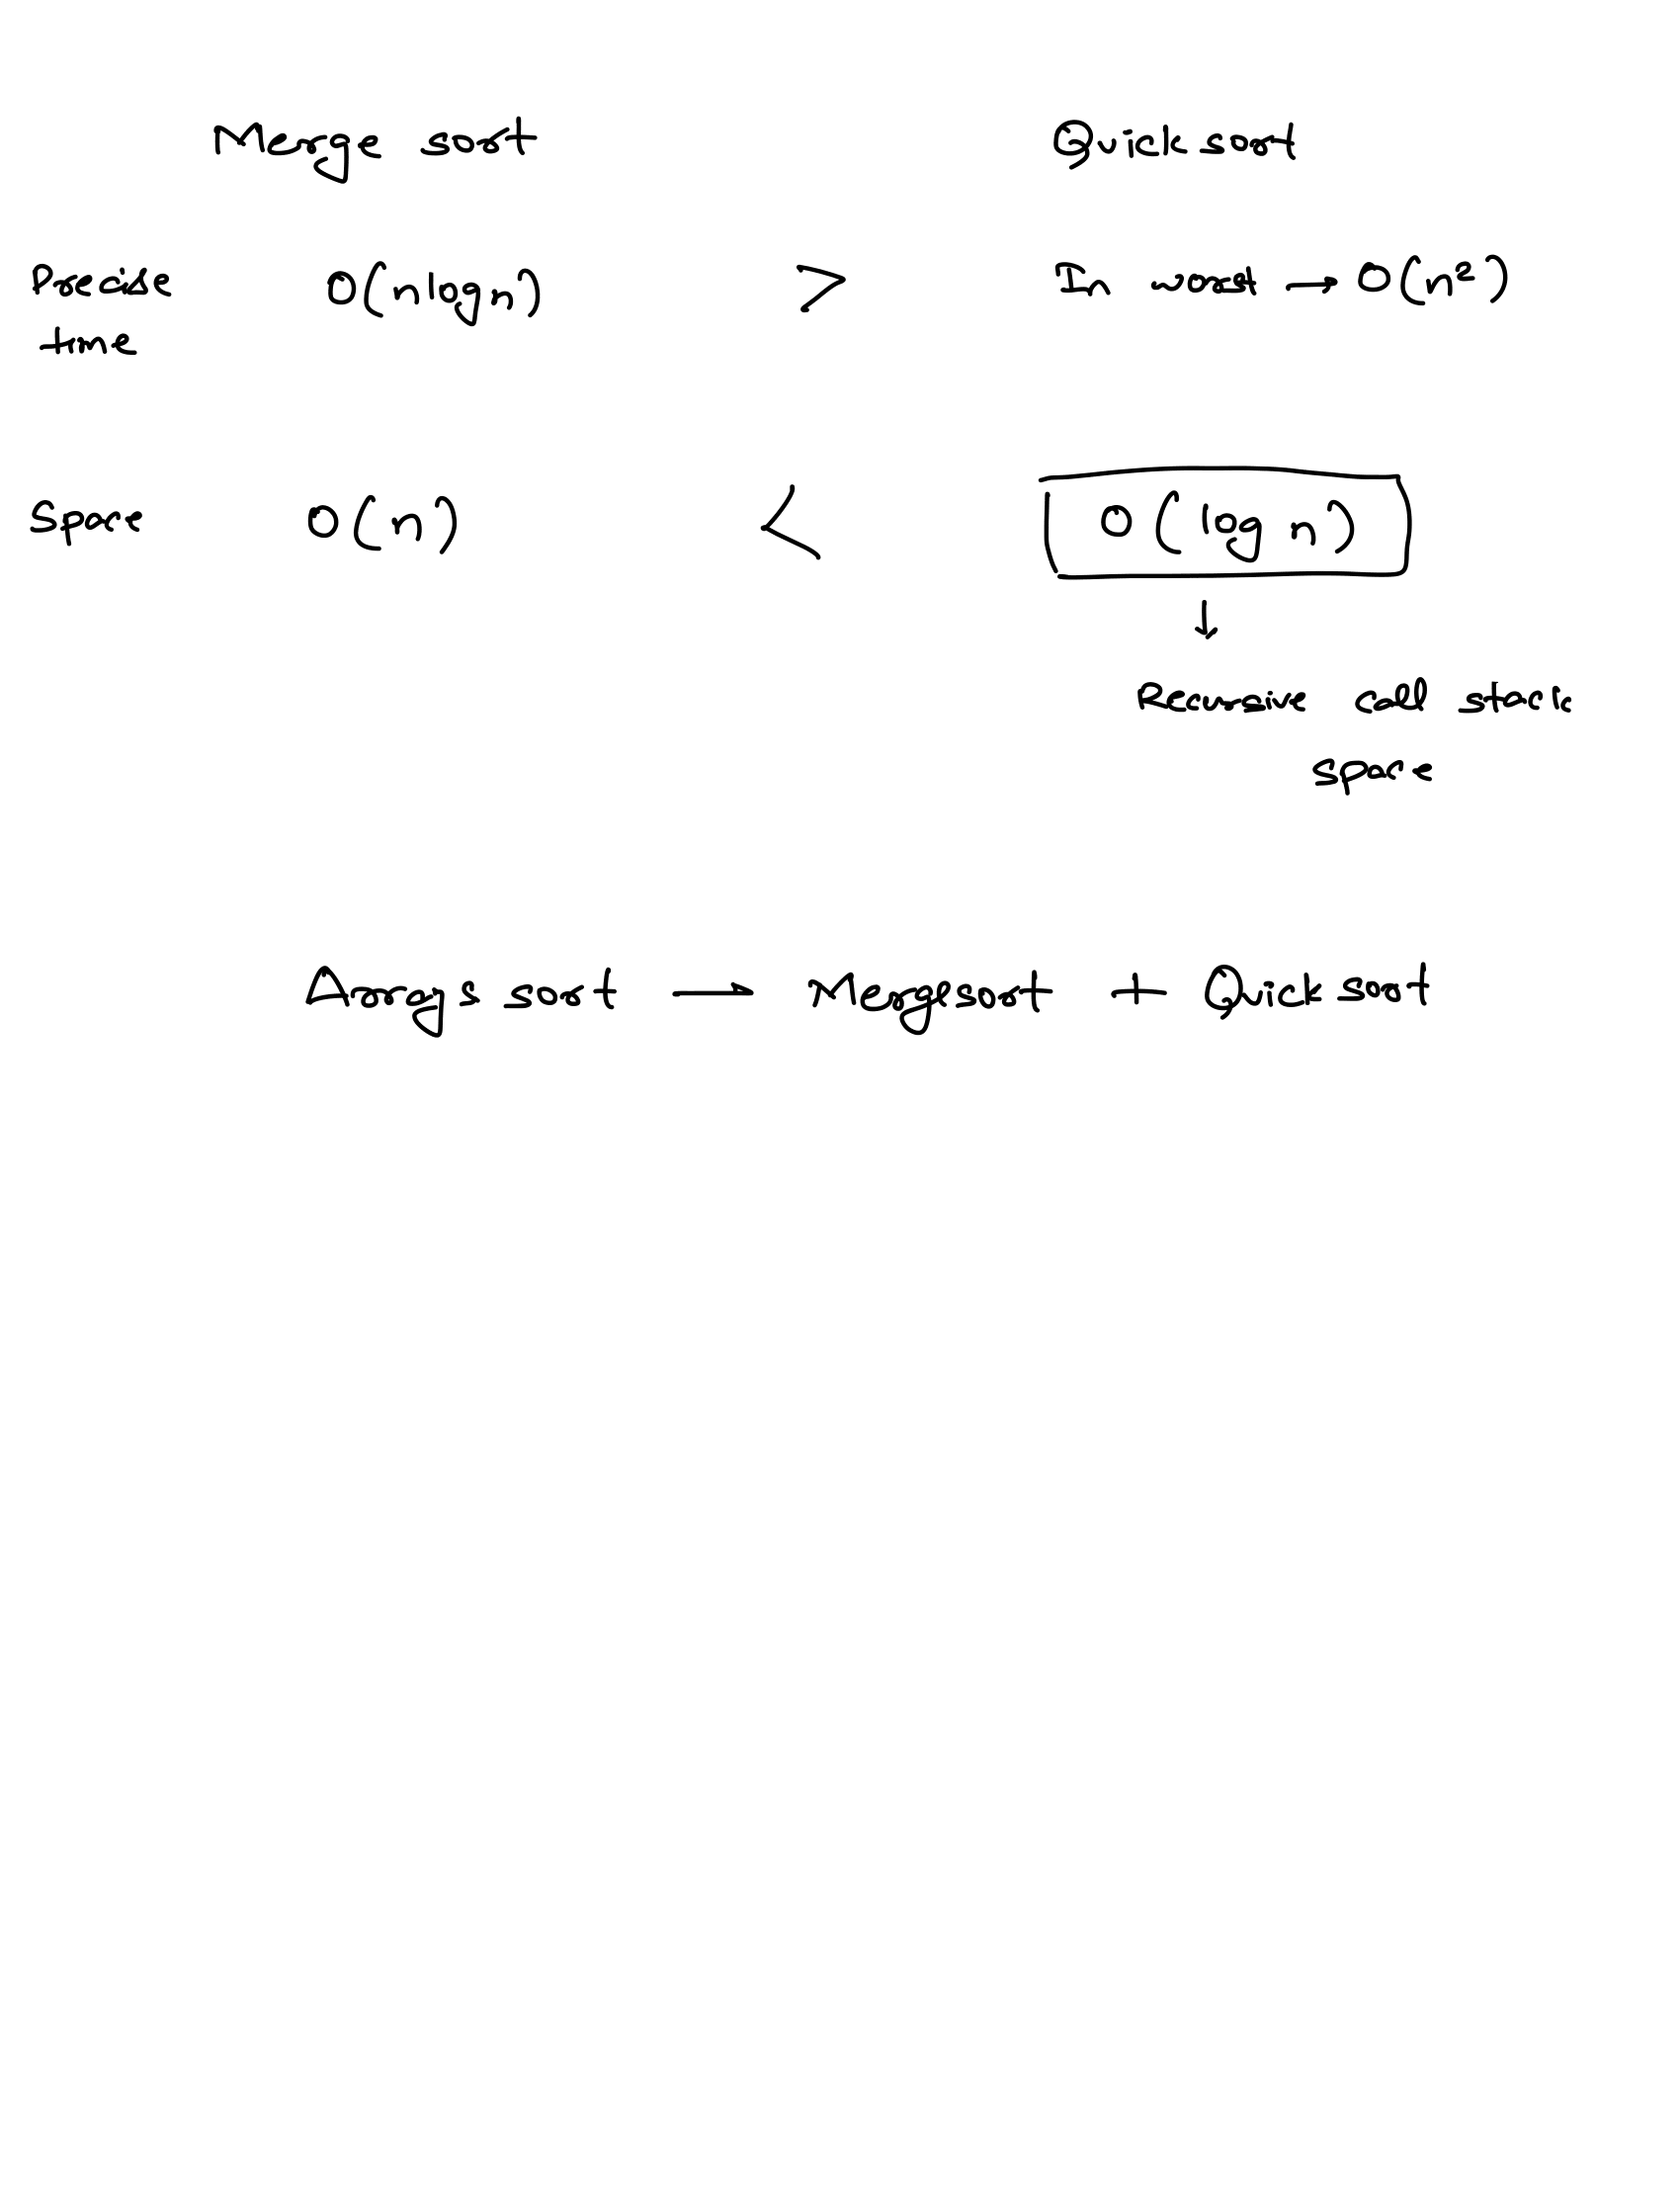 Merge sort Quick sort
Precise O(nlogn) > In worst → O(n²)
time
Space O(n) < O(log n)
↓
Recursive call stack
space
Arrays sort → Mergesort + Quick sort